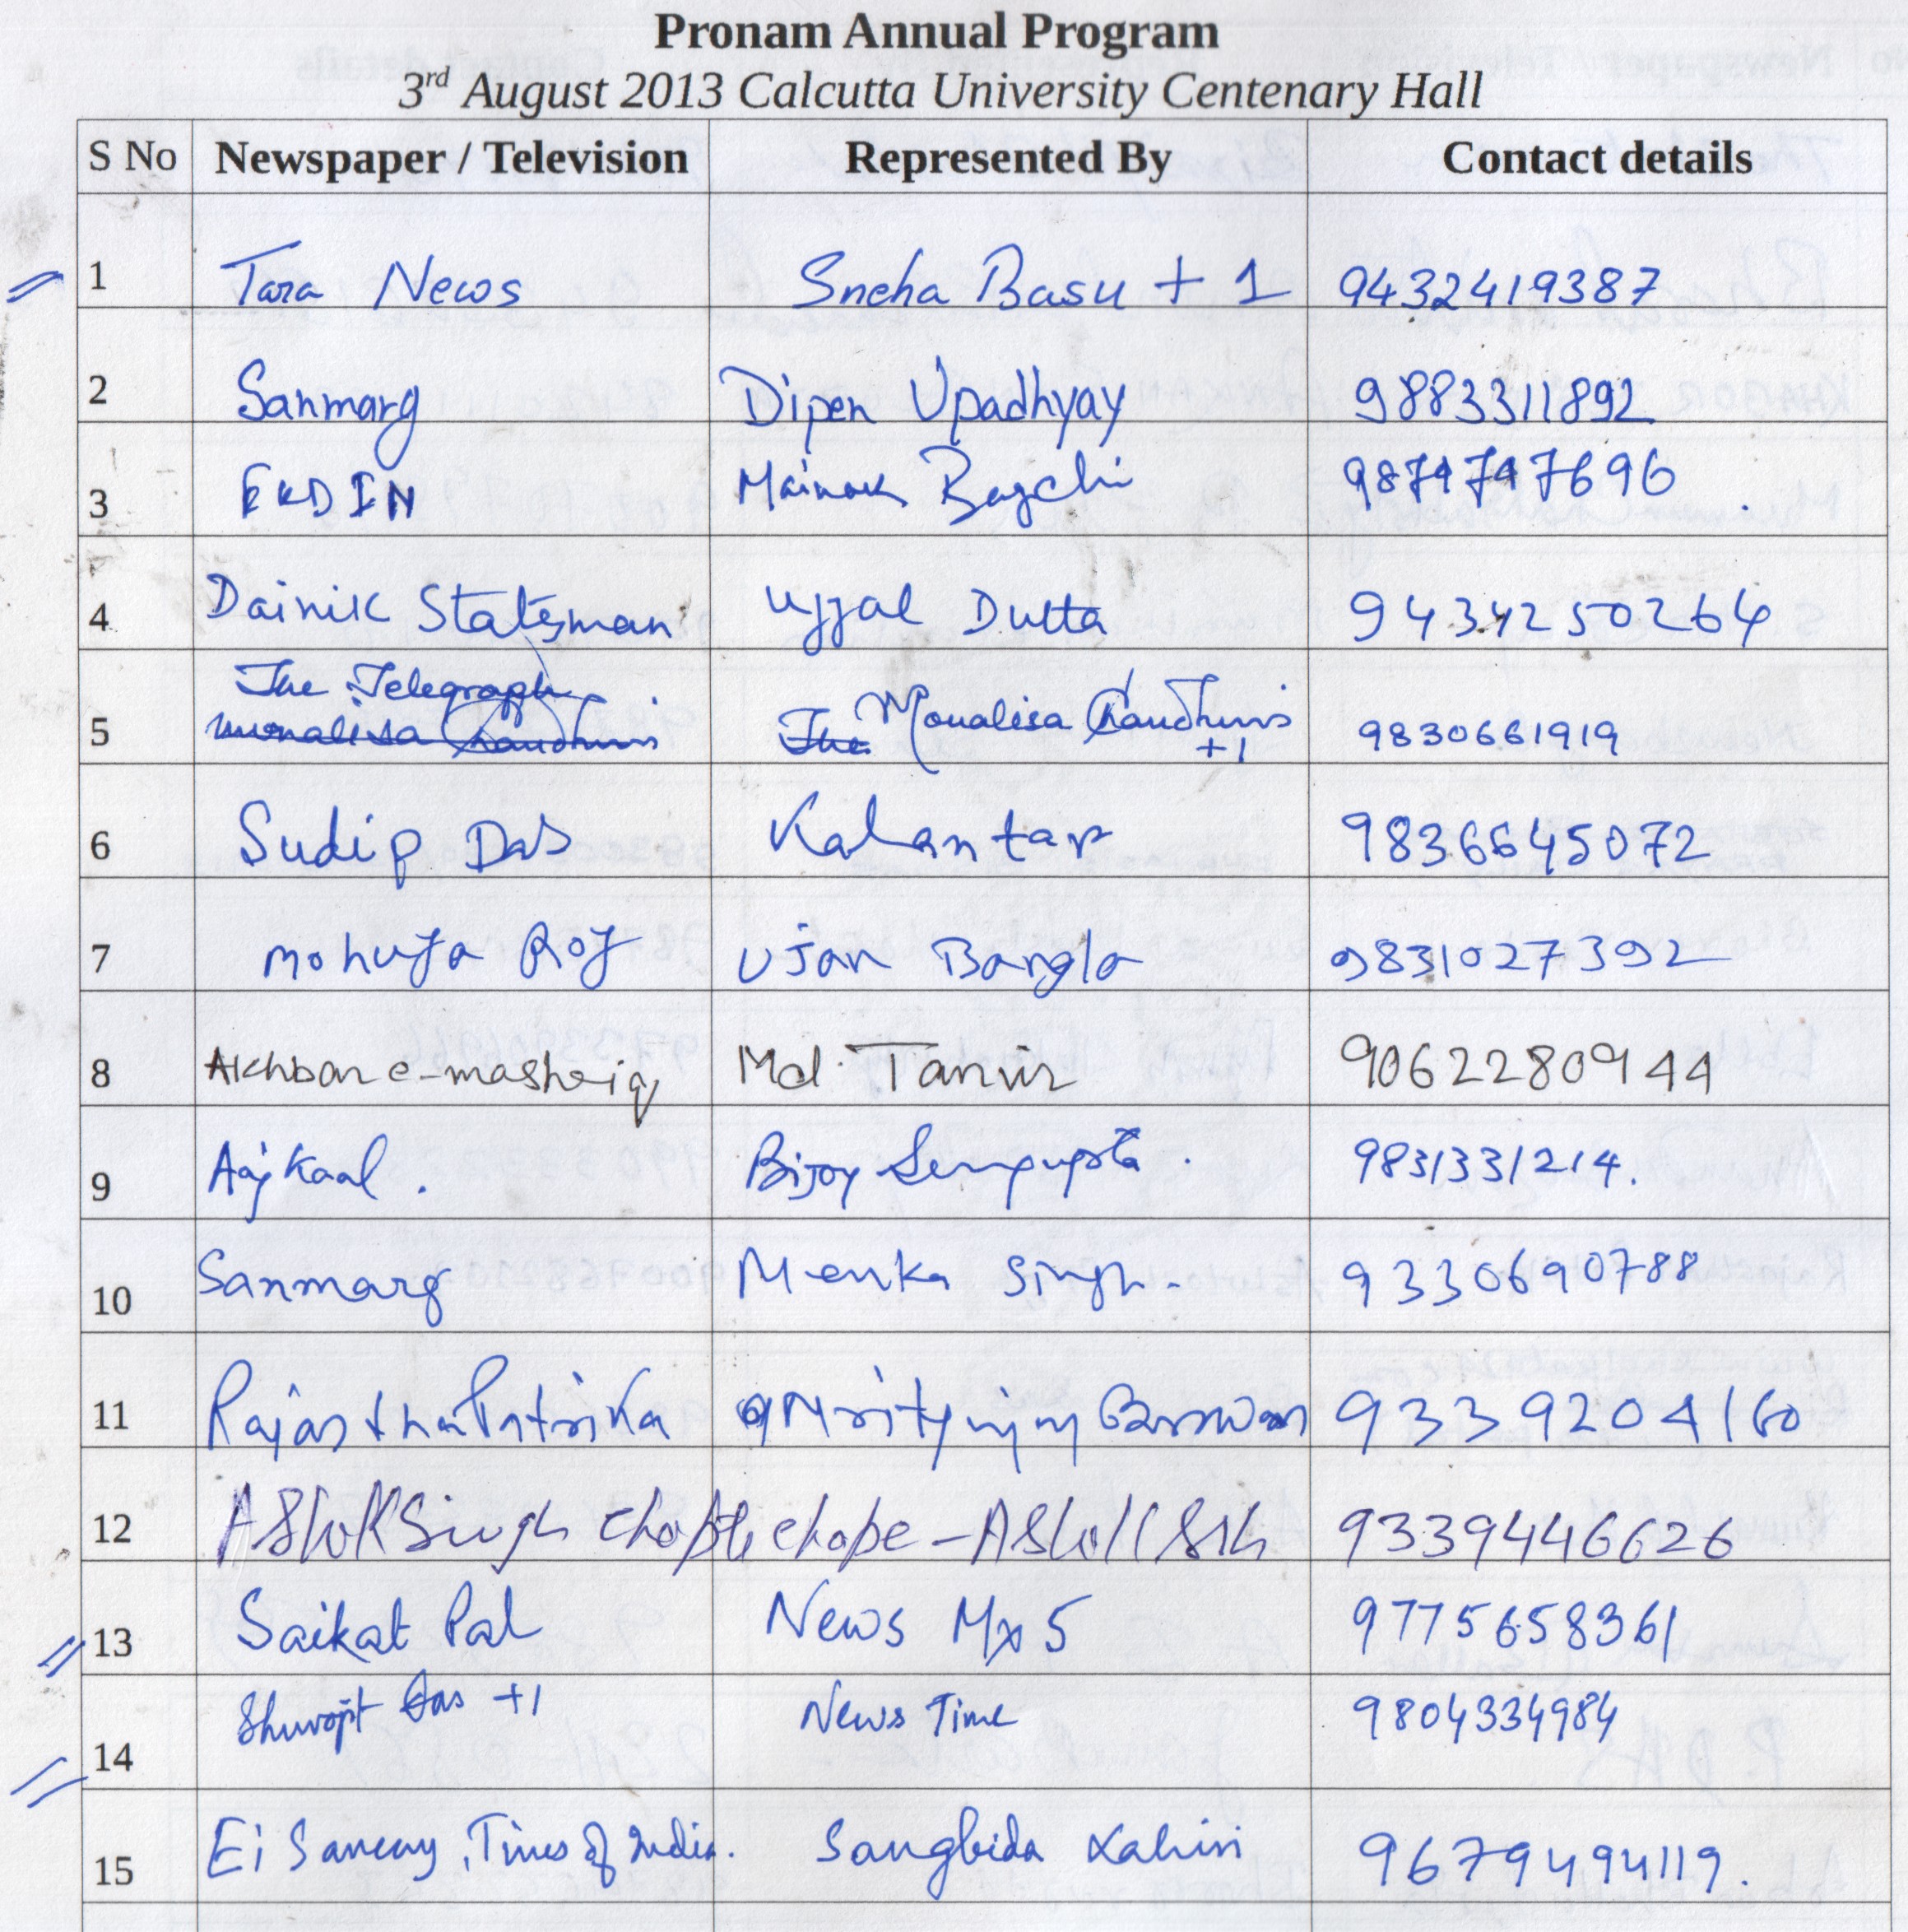 Pronam Annual Program
3rd August 2013 Calcutta University Centenary Hall
S No Newspaper / Television Represented By Contact details
1 Tara News Sneha Basu + 1 9432419387
2 Sanmarg Dipen Upadhyay 9883311892
3 EKDIN Mainak Bagchi 9874747696
4 Dainik Statesman Ujjal Dutta 9434250264
The Telegraph
5 Monalisa Chaudhuri The Monalisa Chaudhuri 9830661919
+1
6 Sudip Das Kalantar 9836645072
7 Mohuya Roy Ujan Bangla 9831027392
8 Akhbar e-mashriq Md. Tanvir 9062280944
9 Aajkaal. Bijoy Sengupta. 9831331214.
10 Sanmarg Menka Singh- 9330690788
11 Rajasthan Patrika Mrityunjoy 9339204160
12 Ashok Singh Chapte chapte - 9339446626
13 Saikat Pal News Mx 5 9775658361
14 Shuvojit Das +1 News Time 9804334984
15 Ei Samay, Times of India. Sangbida Lahiri 9679494119.